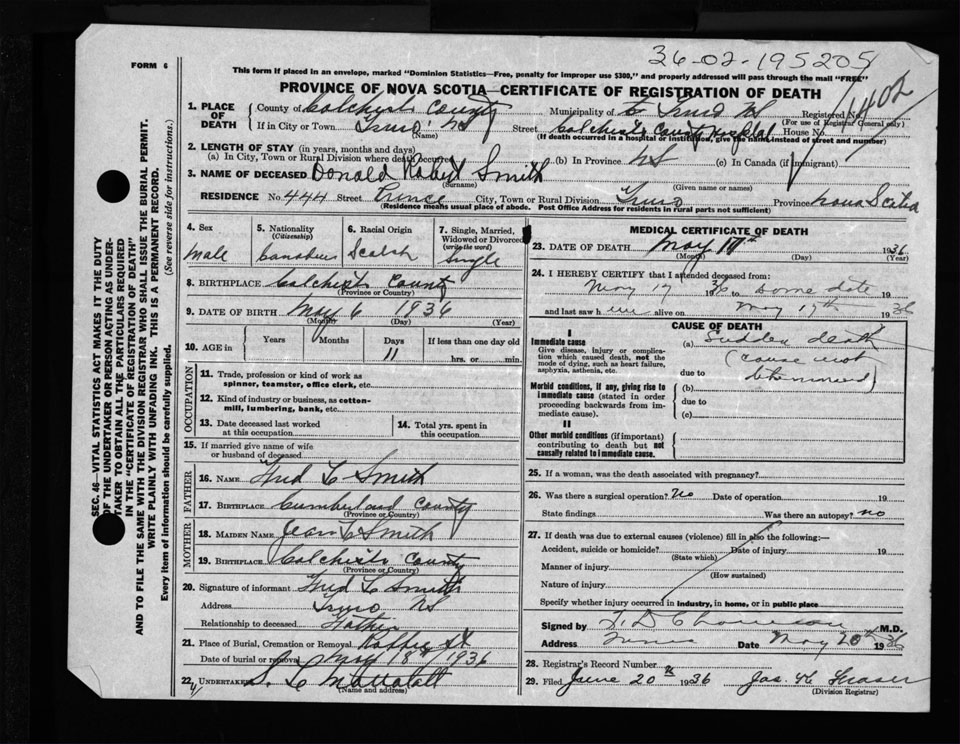 36-02-195205
FORM 6
This form if placed in an envelope, marked "Dominion Statistics—Free, penalty for improper use $300," and properly addressed will pass through the mail "FREE"
PROVINCE OF NOVA SCOTIA—CERTIFICATE OF REGISTRATION OF DEATH
1402
1. PLACE OF DEATH
County of Colchester County Municipality of Truro NS Registered No.
(For use of Registrar General only)
If in City or Town Truro NS Street Colchester County Hospital House No.
(Name) (If death occurred in a hospital or institution, give the name instead of street and number)
2. LENGTH OF STAY (in years, months and days)
(a) In City, Town or Rural Division where death occurred (b) In Province NS (c) In Canada (if immigrant)
3. NAME OF DECEASED Donald Robert Smith
(Surname) (Given name or names)
RESIDENCE No. 444 Street Prince City, Town or Rural Division Truro Province Nova Scotia
(Residence means usual place of abode. Post Office Address for residents in rural parts not sufficient)
4. Sex 5. Nationality (Citizenship) 6. Racial Origin 7. Single, Married, Widowed or Divorced (write the word)
Male Canadian Scotch Single
8. BIRTHPLACE Colchester County
(Province or Country)
9. DATE OF BIRTH May 6 1936
(Month) (Day) (Year)
10. AGE in Years Months Days If less than one day old
11 hrs. or min.
OCCUPATION
11. Trade, profession or kind of work as
spinner, teamster, office clerk, etc.
12. Kind of industry or business, as cotton-
mill, lumbering, bank, etc.
13. Date deceased last worked
at this occupation
14. Total yrs. spent in
this occupation
15. If married give name of wife
or husband of deceased
FATHER
16. NAME Fred C Smith
17. BIRTHPLACE Cumberland County
(Province or Country)
MOTHER
18. MAIDEN NAME Jean C Smith
19. BIRTHPLACE Colchester County
(Province or Country)
20. Signature of informant Fred C Smith
Address Truro NS
Relationship to deceased Father
21. Place of Burial, Cremation or Removal
Date of burial or removal May 18th 1936
22. UNDERTAKER
(Name and address)
MEDICAL CERTIFICATE OF DEATH
23. DATE OF DEATH May 17th 1936
(Month) (Day) (Year)
24. I HEREBY CERTIFY that I attended deceased from:
May 17 1936 to same date 19
and last saw h im alive on May 17th 1936
CAUSE OF DEATH
I
Immediate cause
Give disease, injury or complica-
tion which caused death, not the
mode of dying, such as heart failure,
asphyxia, asthenia, etc.
(a) Sudden death
(cause not
due to determined)
Morbid conditions, if any, giving rise to
immediate cause (stated in order
proceeding backwards from im-
mediate cause).
(b)
due to
(c)
II
Other morbid conditions (if important)
contributing to death but not
causally related to immediate cause.
25. If a woman, was the death associated with pregnancy?
26. Was there a surgical operation? No Date of operation 19
State findings Was there an autopsy? no
27. If death was due to external causes (violence) fill in also the following:—
Accident, suicide or homicide? Date of injury 19
(State which)
Manner of injury
(How sustained)
Nature of injury
Specify whether injury occurred in industry, in home, or in public place
Signed by M.D.
Address Truro Date May 20th 1936
28. Registrar's Record Number
29. Filed June 20th 1936 Jas. H. Fraser
(Division Registrar)
SEC. 46—VITAL STATISTICS ACT MAKES IT THE DUTY
OF THE UNDERTAKER OR PERSON ACTING AS UNDER-
TAKER TO OBTAIN ALL THE PARTICULARS REQUIRED
IN THE "CERTIFICATE OF REGISTRATION OF DEATH"
AND TO FILE THE SAME WITH THE DIVISION REGISTRAR WHO SHALL ISSUE THE BURIAL PERMIT.
WRITE PLAINLY WITH UNFADING INK. THIS IS A PERMANENT RECORD.
Every item of information should be carefully supplied. (See reverse side for instructions.)